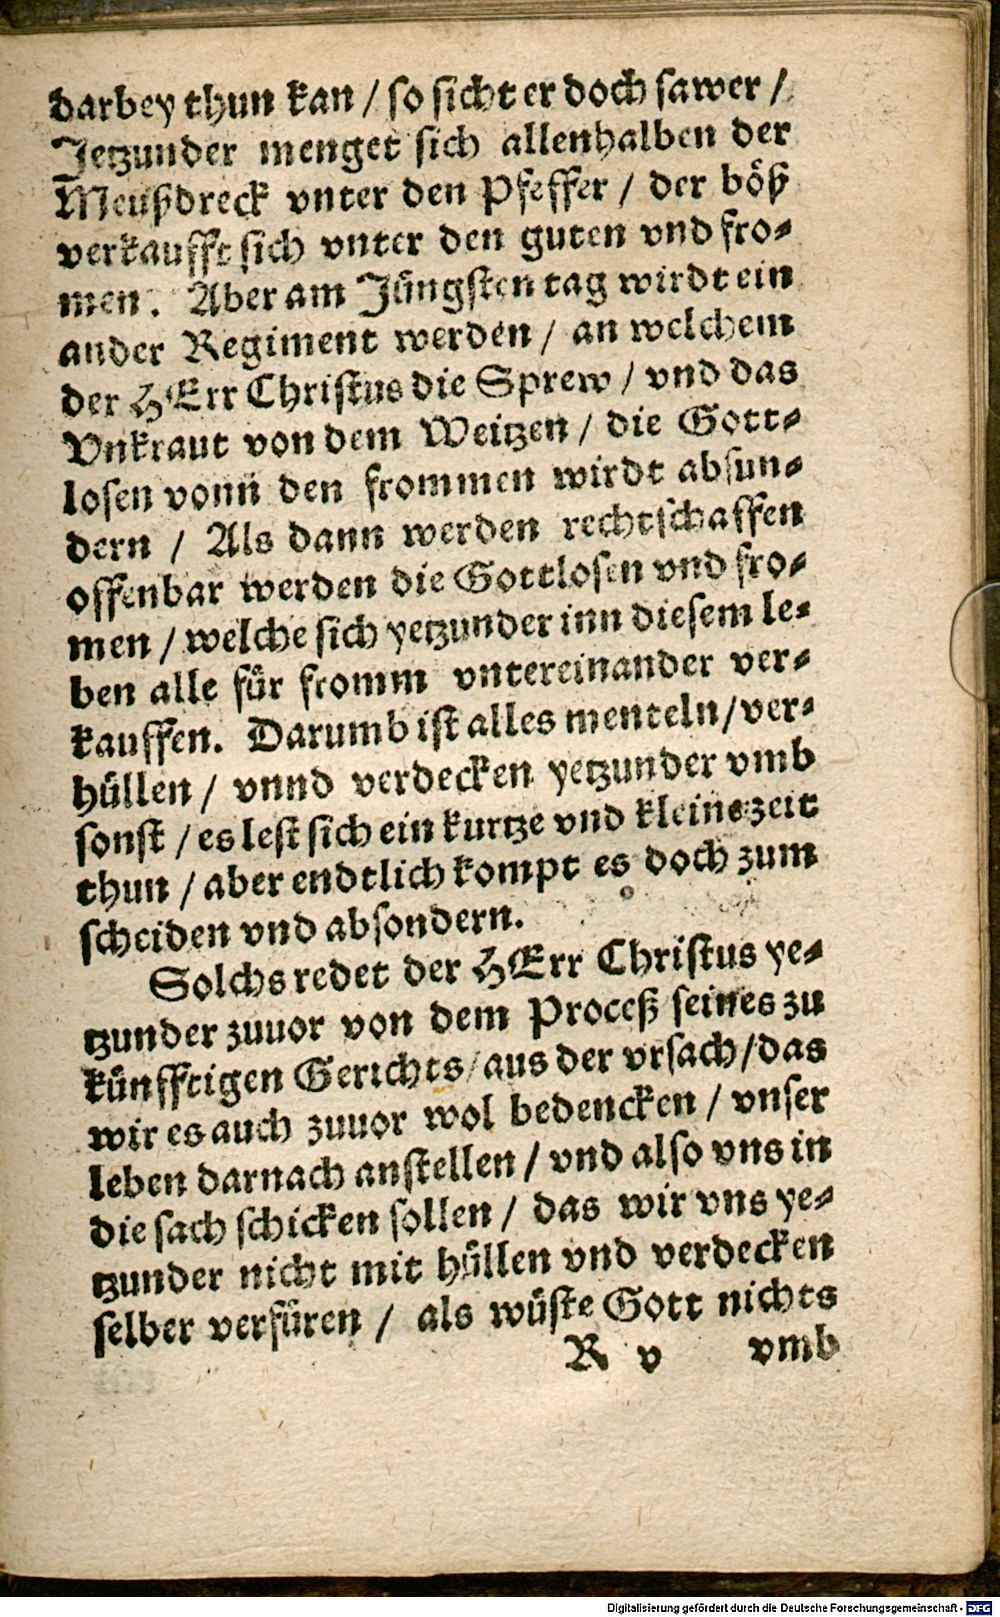 darbey thun kan / so sicht er doch sawer /
Jetzunder menget sich allenhalben der
Meußdreck vnter den Pfeffer / der böß
verkaufft sich vnter den guten vnd fro-
men. Aber am Jüngsten tag wirdt ein
ander Regiment werden / an welchem
der HErr Christus die Sprew / vnd das
Vnkraut von dem Weitzen / die Gott-
losen vonn den frommen wirdt absun-
dern / Als dann werden rechtschaffen
offenbar werden die Gottlosen vnd fro-
men / welche sich yetzunder inn diesem le-
ben alle für fromm vntereinander ver-
kauffen. Darumb ist alles menteln / ver-
hüllen / vnnd verdecken yetzunder vmb
sonst / es lest sich ein kurtze vnd kleine zeit
thun / aber endtlich kompt es doch zum
scheiden vnd absondern.
Solchs redet der HErr Christus ye-
tzunder zuuor von dem Proceß seines zu
künfftigen Gerichts / aus der vrsach / das
wir es auch zuuor wol bedencken / vnser
leben darnach anstellen / vnd also vns in
die sach schicken sollen / das wir vns ye-
tzunder nicht mit hüllen vnd verdecken
selber verfüren / als wüste Gott nichts
R v vmb
Digitalisierung gefördert durch die Deutsche Forschungsgemeinschaft - DFG